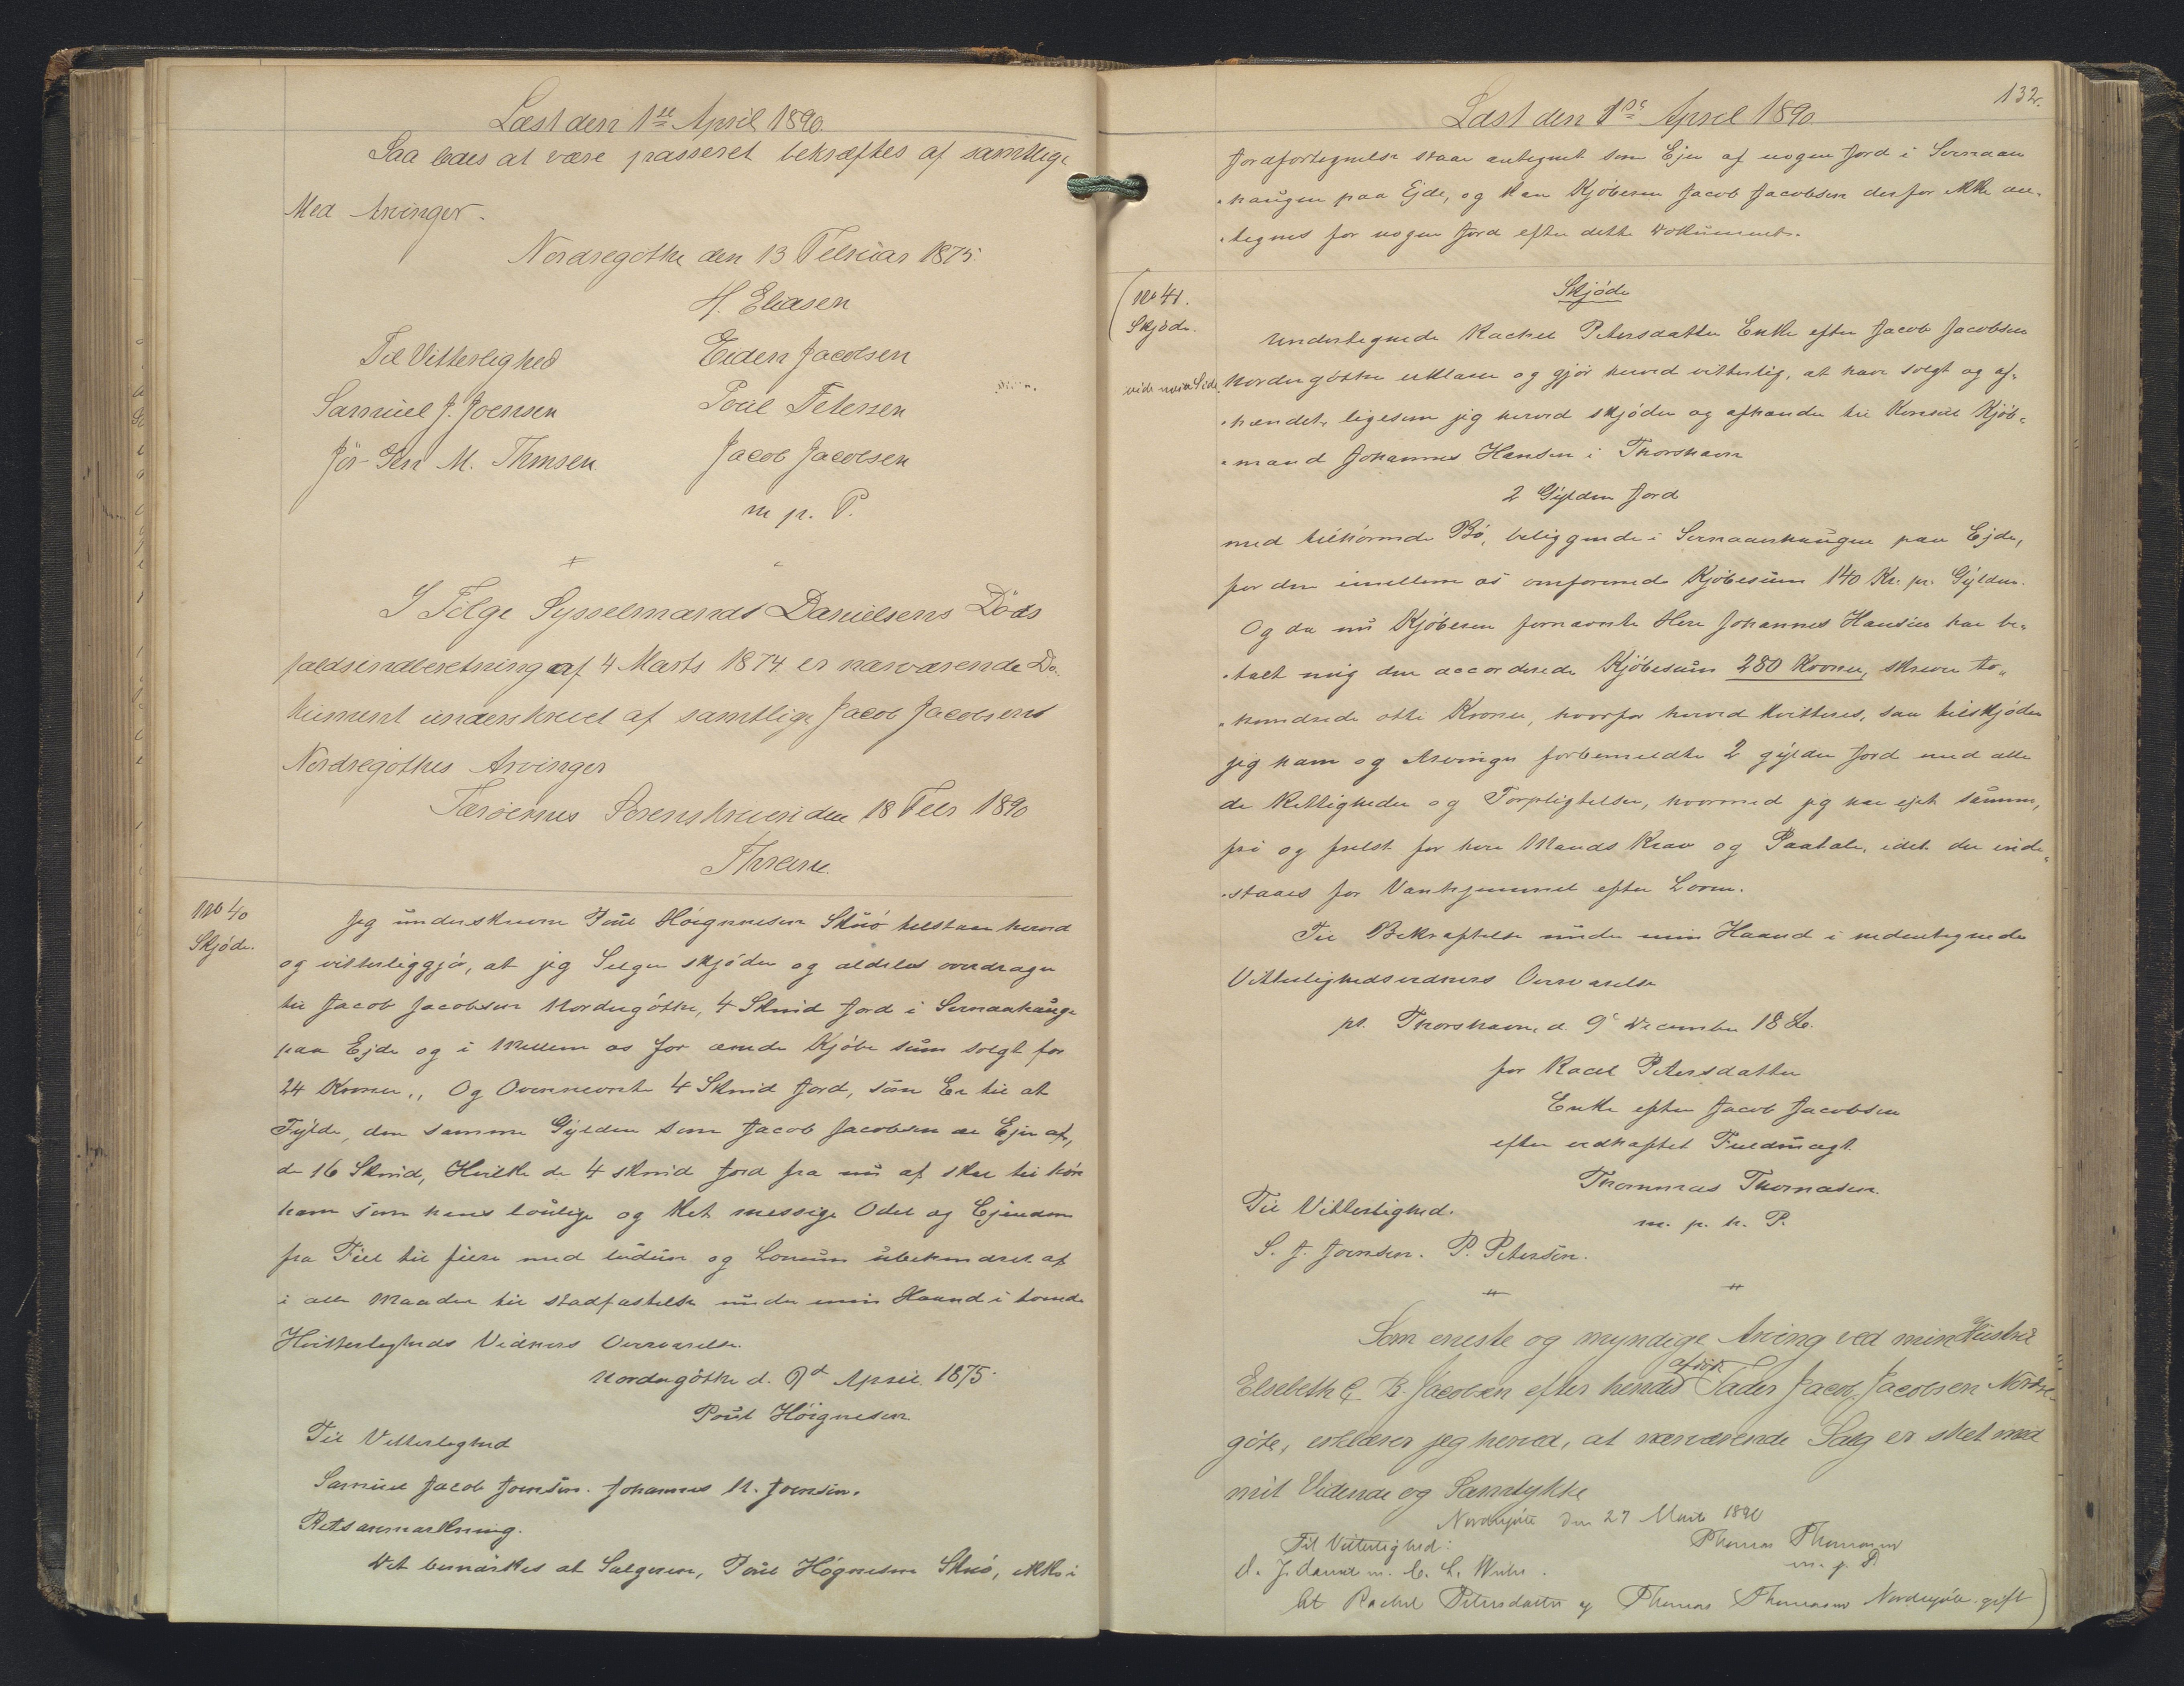 Læst den 1ste April 1890.
Saaledes at være passeret bekræftes af samtlige
Med Arvinger.
Nordregöthe den 13 Februar 1875.
H. Eliasen
Til Vitterlighed
Eiden Jacobsen
Samuel J. Joensen
Poul Petersen
M. Thomsen
Jacob Jacobsen
m p. P.
I Følge Sysselmands Danielsens Döds
faldsindberetning af 4 Marts 1874 er nærværende Do-
kument underskrevet af samtlige Jacob Jacobsens
Nordregöthes Arvinger
Færöernes Sorenskriveri den 18 Febr 1890
No 40
Skjöde.
Jeg underskrevne Poul Höignesen Skuö tilstaar herved
og vitterliggjör, at jeg Selger skjöder og aldeles overdrager
til Jacob Jacobsen Nordregöthe, 4 Skind Jord i
paa Ejde og i Mellem os for ænede Kjöbe sum solgt for
24 Kroner,, Og Ovennevnte 4 Skind Jord, som Er til at
Fylde, den samme Gylden som Jacob Jacobsen er Ejer af,
de 16 Skind, Hvilke de 4 skind Jord fra nu af skal til hör
ham som hans loulige og Ret messige Odel og Ejendom
fra Fiell til fiere med ludum og Lonum ubehindret af
i alle Maader til stadfæstelse under min Haand i tvende
Hvitterligheds Vidners Overværelse.
Nordregöthe d. 9d April 1875.
Poul Höignesen
Til Vitterlighed
Samuel Jacob Joensen. Johannes M. Joensen.
Retsanmærkning.
Det bemærkes at Sælgeren, Poul Högnesen Skuö, ikke i
132.
Læst den 1ste April 1890.
Jordfortegnelse staar antegnet som Ejer af nogen Jord i
haugen paa Ejde, og kan Kjöberen Jacob Jacobsen derfor ikke an-
tegnes for nogen Jord efter dette Dokument.
No 41.
Skjöde.
Skjöde
Undertegnede Rachel Petersdatter Enke efter Jacob Jacobsen
Nordregöthe erklærer og gjör herved vitterlig, at have solgt og af-
hændet, ligesom jeg herved skjöder og afhænder til Konsul Kjöb-
mand Johannes Hansen i Thorshavn
2 Gylden Jord
med tilhörende Bö, beliggende i paa Ejde,
for den imellem os omforenede Kjöbesum 140 Kr. pr. Gylden.
Og da nu Kjöberen fornævnte Herr Johannes Hansen har be-
talt mig den accorderede Kjöbesum 280 Kroner, skriver to-
hundrede otti Kroner, hvorfor herved kvitteres, saa tilskjöder
jeg ham og Arvinger forbemeldte 2 gylden Jord med alle
de Rettigheder og Forpligtelser, hvormed jeg har ejet samme,
fri og frelst for hver Mands Krav og Paatale, idet der inde-
staaes for Vanhjemmel efter Loven.
Til Bekræftelse under min Haand i nedentegnede
Vitterlighedsvidners Overværelse
pt. Thorshavn, d. 9d December 1886.
for Racel Petersdatter
Enke efter Jacob Jacobsen
efter vedhæftet Fuldmagt.
Thommas Thomasen.
m. p. h. P.
Til Vitterlighed.
S. J. Joensen. P. Petersen.
Som eneste og myndige Arving ved min Hustru
Elsebeth C. B. Jacobsen efter hendes afdöde Fader Jacob Jacobsen Nordre-
göte, erklærer jeg herved, at nærværende Salg er sket med
mit Vidende og Samtykke
Nordregöte den 27 Marts 1890
Thomas Thomasen
m. p. P.
Til Vitterlighed:
At Rachel Petersdatter og Thomas Thomasen Nordregöte gift